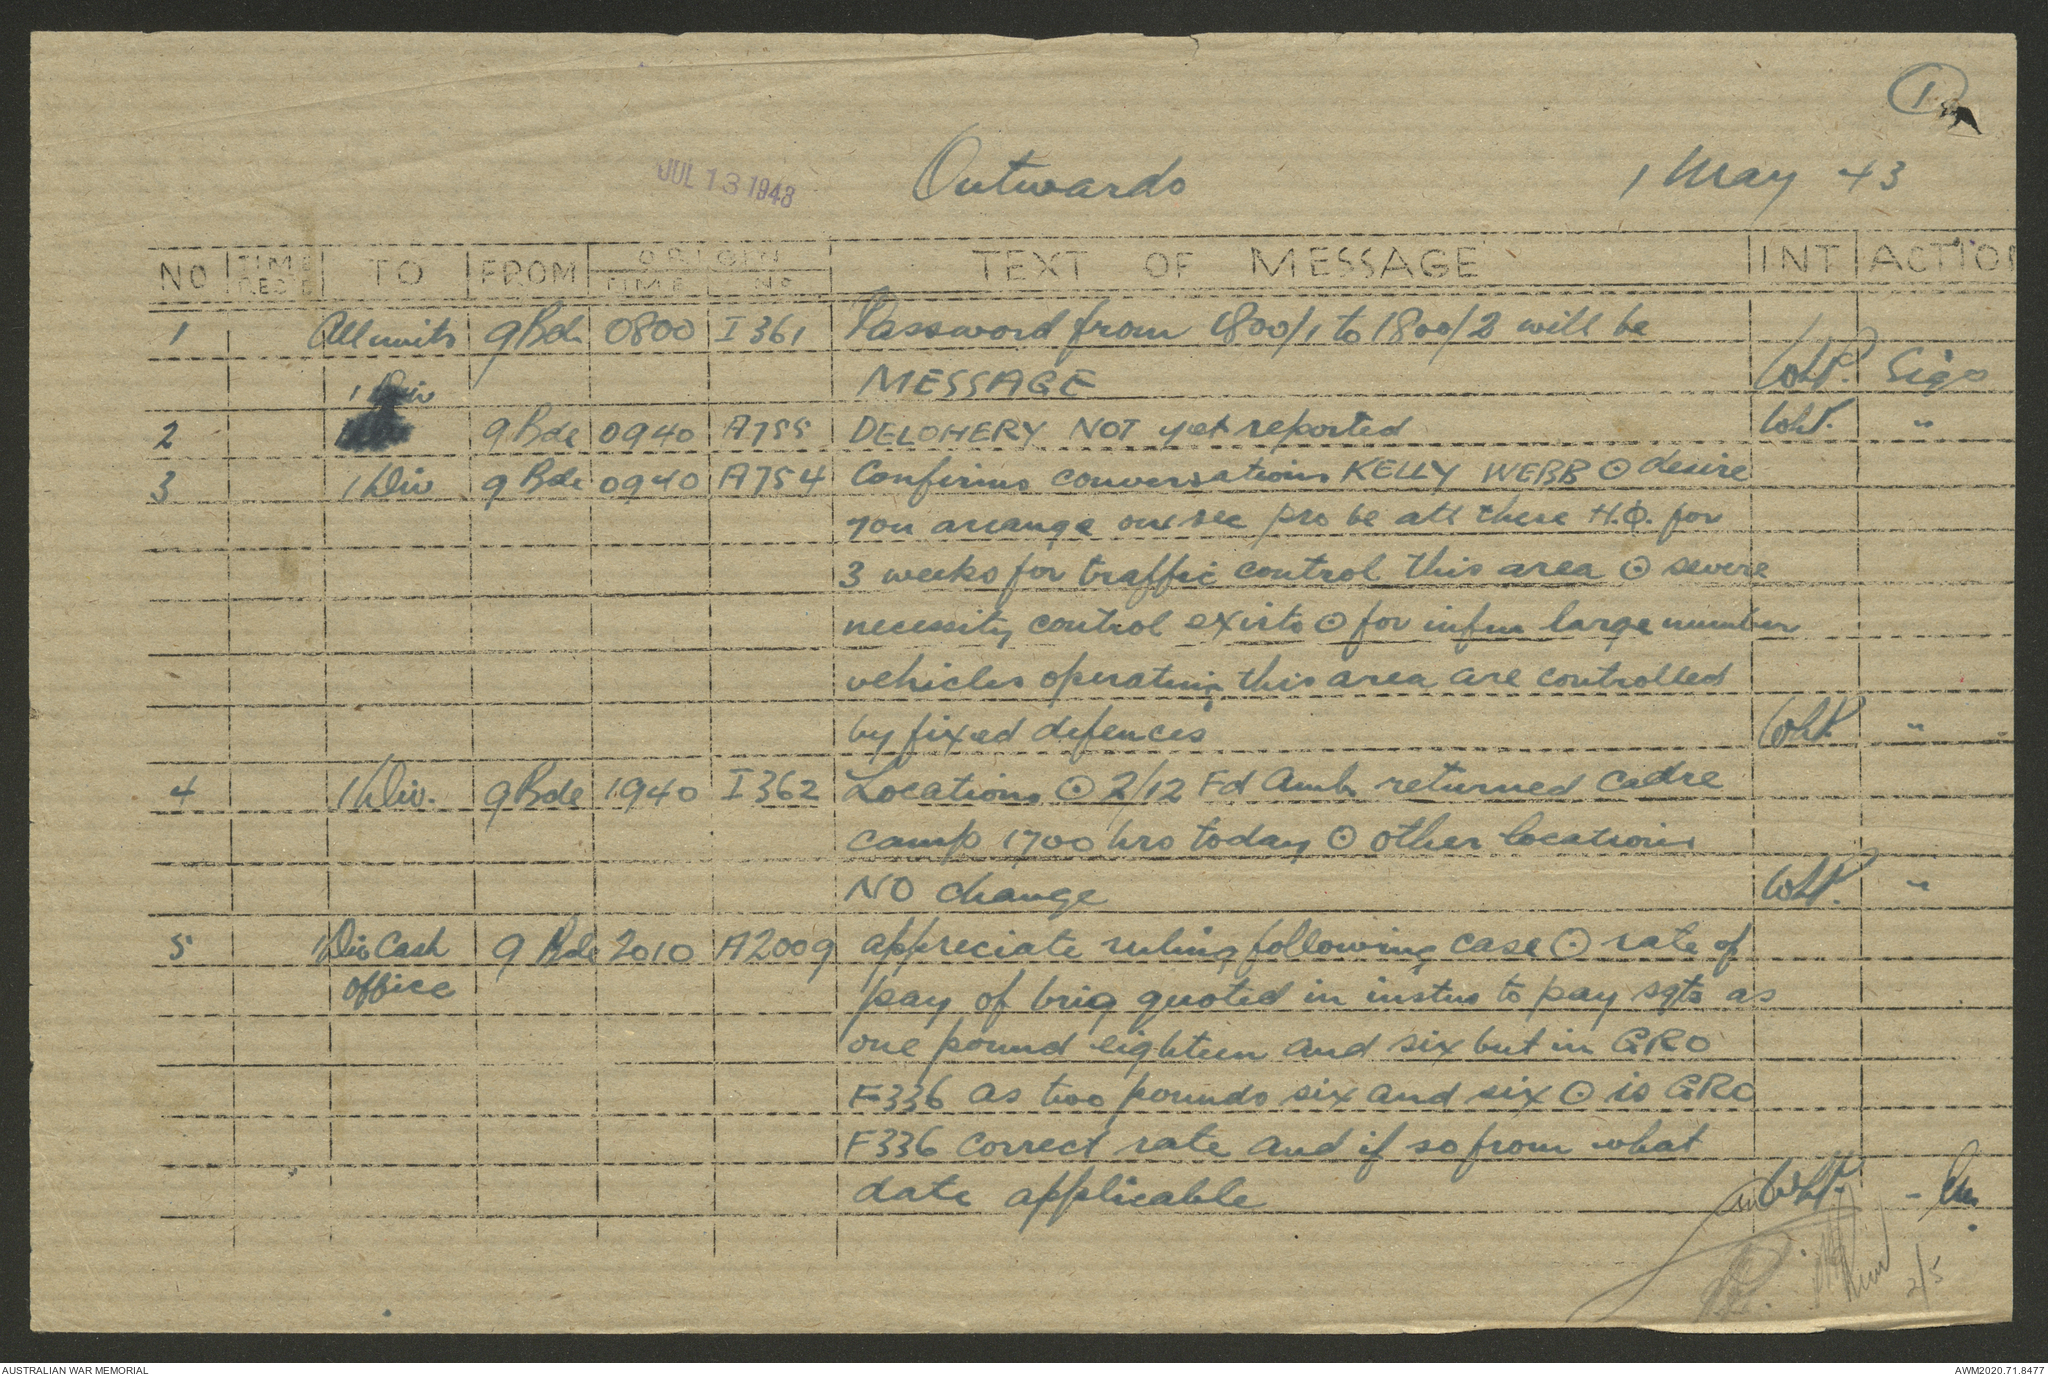 1
JUL 13 1943
Outwards
1 May 43
NO TIME DES'P TO FROM ORIGIN TIME NO TEXT OF MESSAGE INT ACTION
1 All units 9 Bde 0800 I 361 Password from 1800/1 to 1800/2 will be
MESSAGE WLP. Sigs
1 Div
2 9 Bde 0940 A755 DELOHERY NOT yet reported WLP. "
3 1 Div 9 Bde 0940 A754 Confirms conversations KELLY WEBB ⊙ desire
you arrange one sec pro be att these H.Q. for
3 weeks for traffic control this area ⊙ severe
necessity control exists ⊙ for infm large number
vehicles operating this area are controlled
by fixed defences WLP. "
4 1 Div. 9 Bde 1940 I 362 Locations ⊙ 2/12 Fd Amb returned Cadre
camp 1700 hrs today ⊙ other locations
NO change WLP. "
5 1 Div Cash 9 Bde 2010 A2009 appreciate ruling following case ⊙ rate of
office pay of brig quoted in instns to pay sgts as
one pound eighteen and six but in GRO
F336 as two pounds six and six ⊙ is GRO
F336 correct rate and if so from what
date applicable WLP.
2/5
AUSTRALIAN WAR MEMORIAL
AWM2020.71.8477